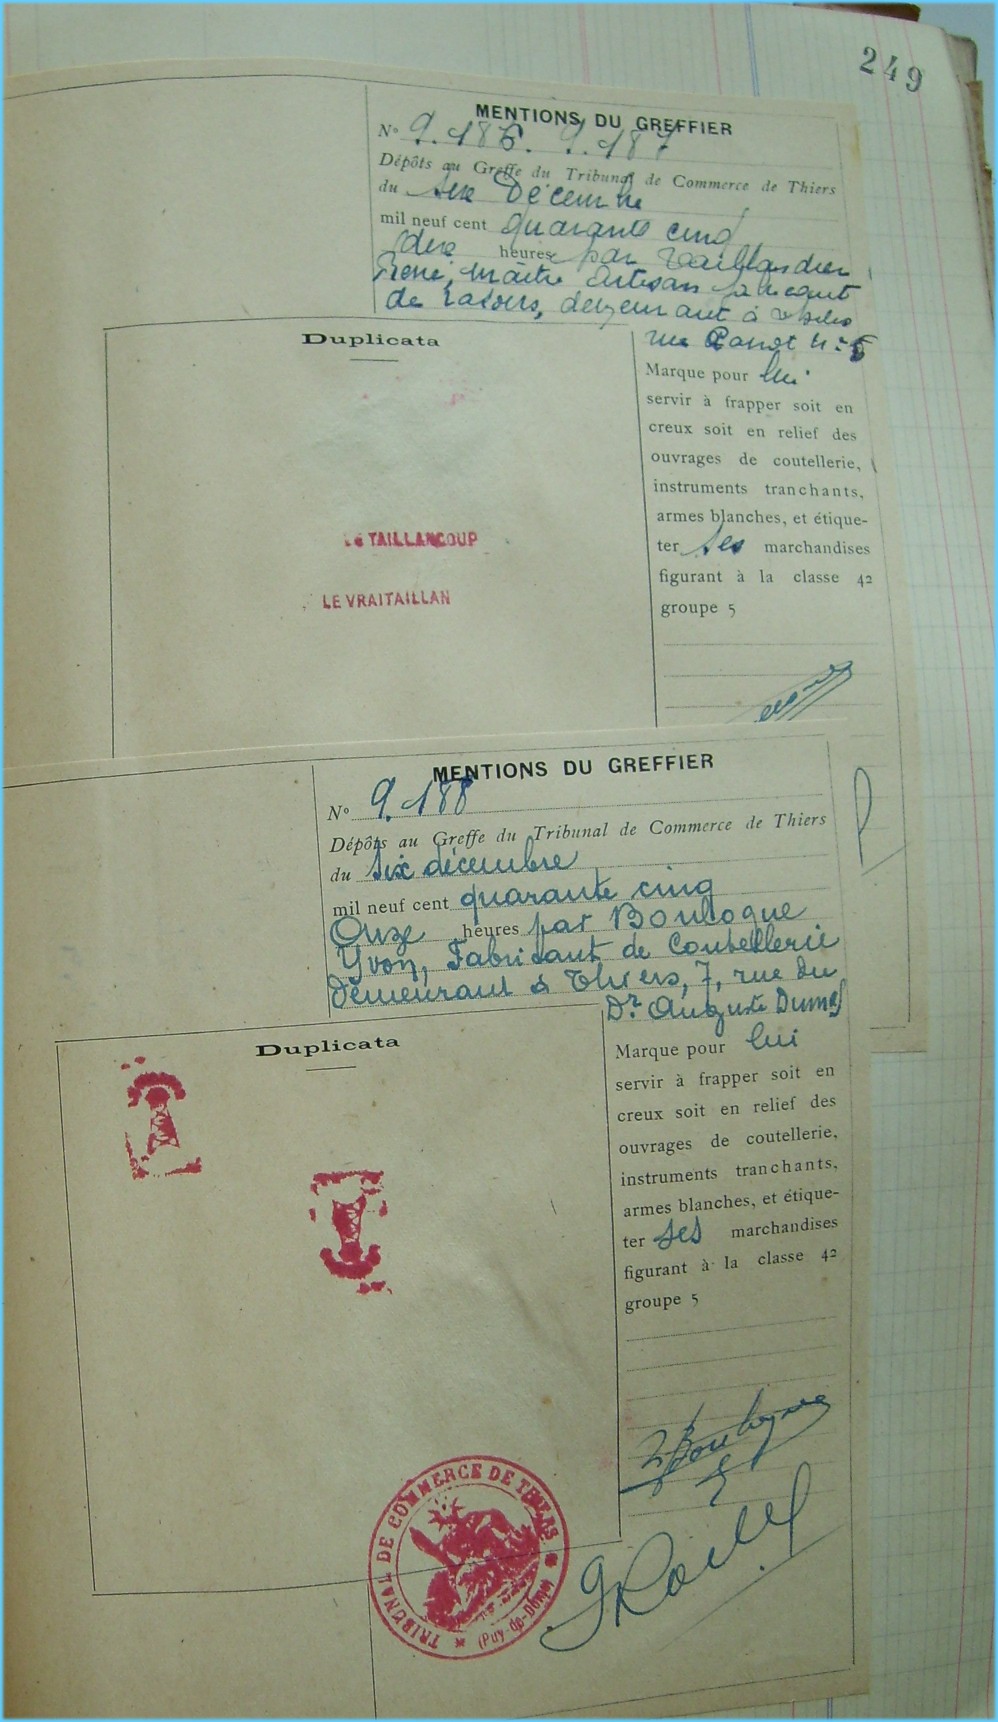 249
MENTIONS DU GREFFIER
N° 9.186. 9.187
Dépôts au Greffe du Tribunal de Commerce de Thiers
du six Décembre
mil neuf cent quarante cinq
heures par Taillandier
René, Maître Artisan fabricant
de rasoirs, demeurant à
rue
Duplicata
Marque pour lui
servir à frapper soit en
creux soit en relief des
ouvrages de coutellerie,
instruments tranchants,
armes blanches, et étique-
ter ses marchandises
figurant à la classe 42
groupe 5
LE TAILLANCOUP
LE VRAITAILLAN
MENTIONS DU GREFFIER
N° 9.188
Dépôts au Greffe du Tribunal de Commerce de Thiers
du six décembre
mil neuf cent quarante cinq
Onze heures par Boulogne
Yvon, Fabricant de Coutellerie
demeurant à Thiers, 7, rue du
Dr Auguste Dumas
Duplicata
Marque pour lui
servir à frapper soit en
creux soit en relief des
ouvrages de coutellerie,
instruments tranchants,
armes blanches, et étique-
ter ses marchandises
figurant à la classe 42
groupe 5
Boulogne
TRIBUNAL DE COMMERCE DE THIERS
(Puy-de-Dôme)